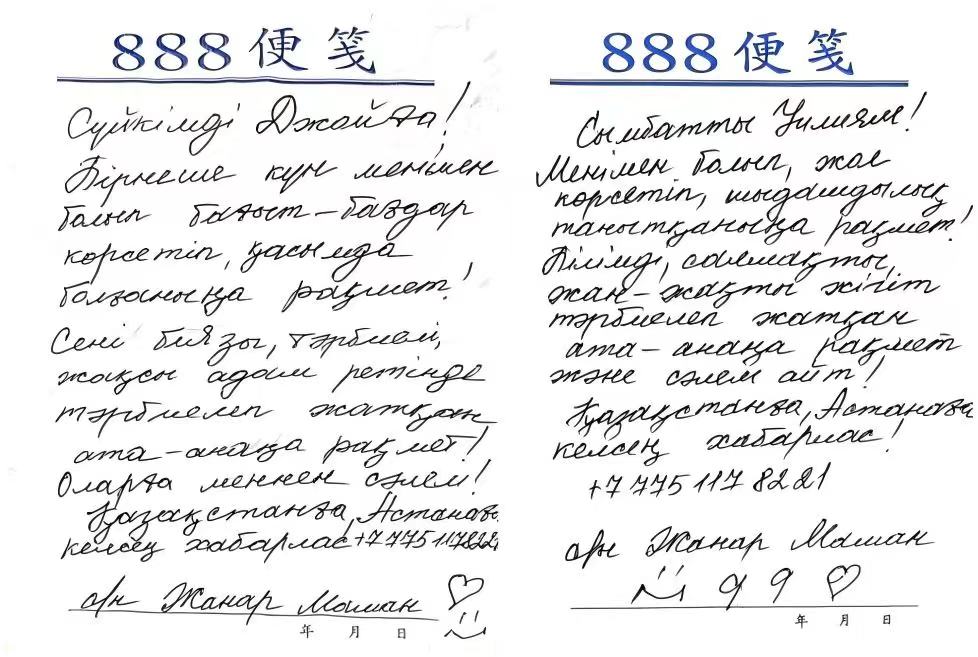 888 便 笺
Сүйкімді Джойға!
Бірнеше күн менімен
болып бағыт-бағдар
көрсетіп, қасымда
болғаныңа рақмет!
Сені биязы, тәрбиелі,
жақсы адам ретінде
тәрбиелеп жатқан
ата-анаңа рақмет!
Оларға меннен сәлем!
Қазақстанға, Астанаға
келсең хабарлас +7 775 117 8221
Жанар Маман
年 月 日
888 便 笺
Сымбатты Уилиям!
Менімен болып, жол
көрсетіп, шыдамдылық
танытқаныңа рақмет!
Білімді, салмақты,
жан-жақты жігіт
тәрбиелеп жатқан
ата-анаңа рақмет
және сәлем айт!
Қазақстанға, Астанаға
келсең хабарлас!
+7 775 117 8221
Жанар Маман
年 月 日